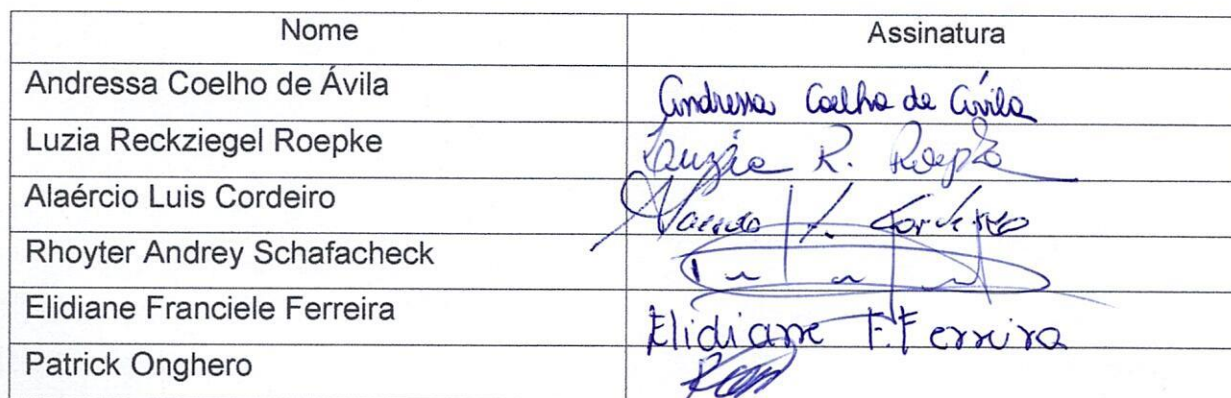 Nome Assinatura
Andressa Coelho de Ávila Andressa Coelho de Ávila
Luzia Reckziegel Roepke Luzia R. Roepke
Alaércio Luis Cordeiro Cordeiro
Rhoyter Andrey Schafacheck
Elidiane Franciele Ferreira Elidiane F. Ferreira
Patrick Onghero